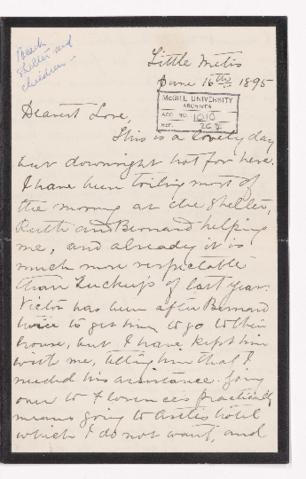 Beach
shelter and
children
Little Metis
June 16th 1895
McGILL UNIVERSITY
ARCHIVES
ACC. NO. 1010
REF.
Dearest Love,
This is a lovely day
but downright hot for here.
I have been toiling most of
the morning at the shelter,
Ruth and Bernard helping
me, and already it is
much more respectable
than Tuckup's of last year.
Victor has been after Bernard
twice to get him to go to their
house, but I have kept him
with me, telling him that I
needed his assistance. Going
over to Florence's practically
means going to Astles hotel
which I do not want, and